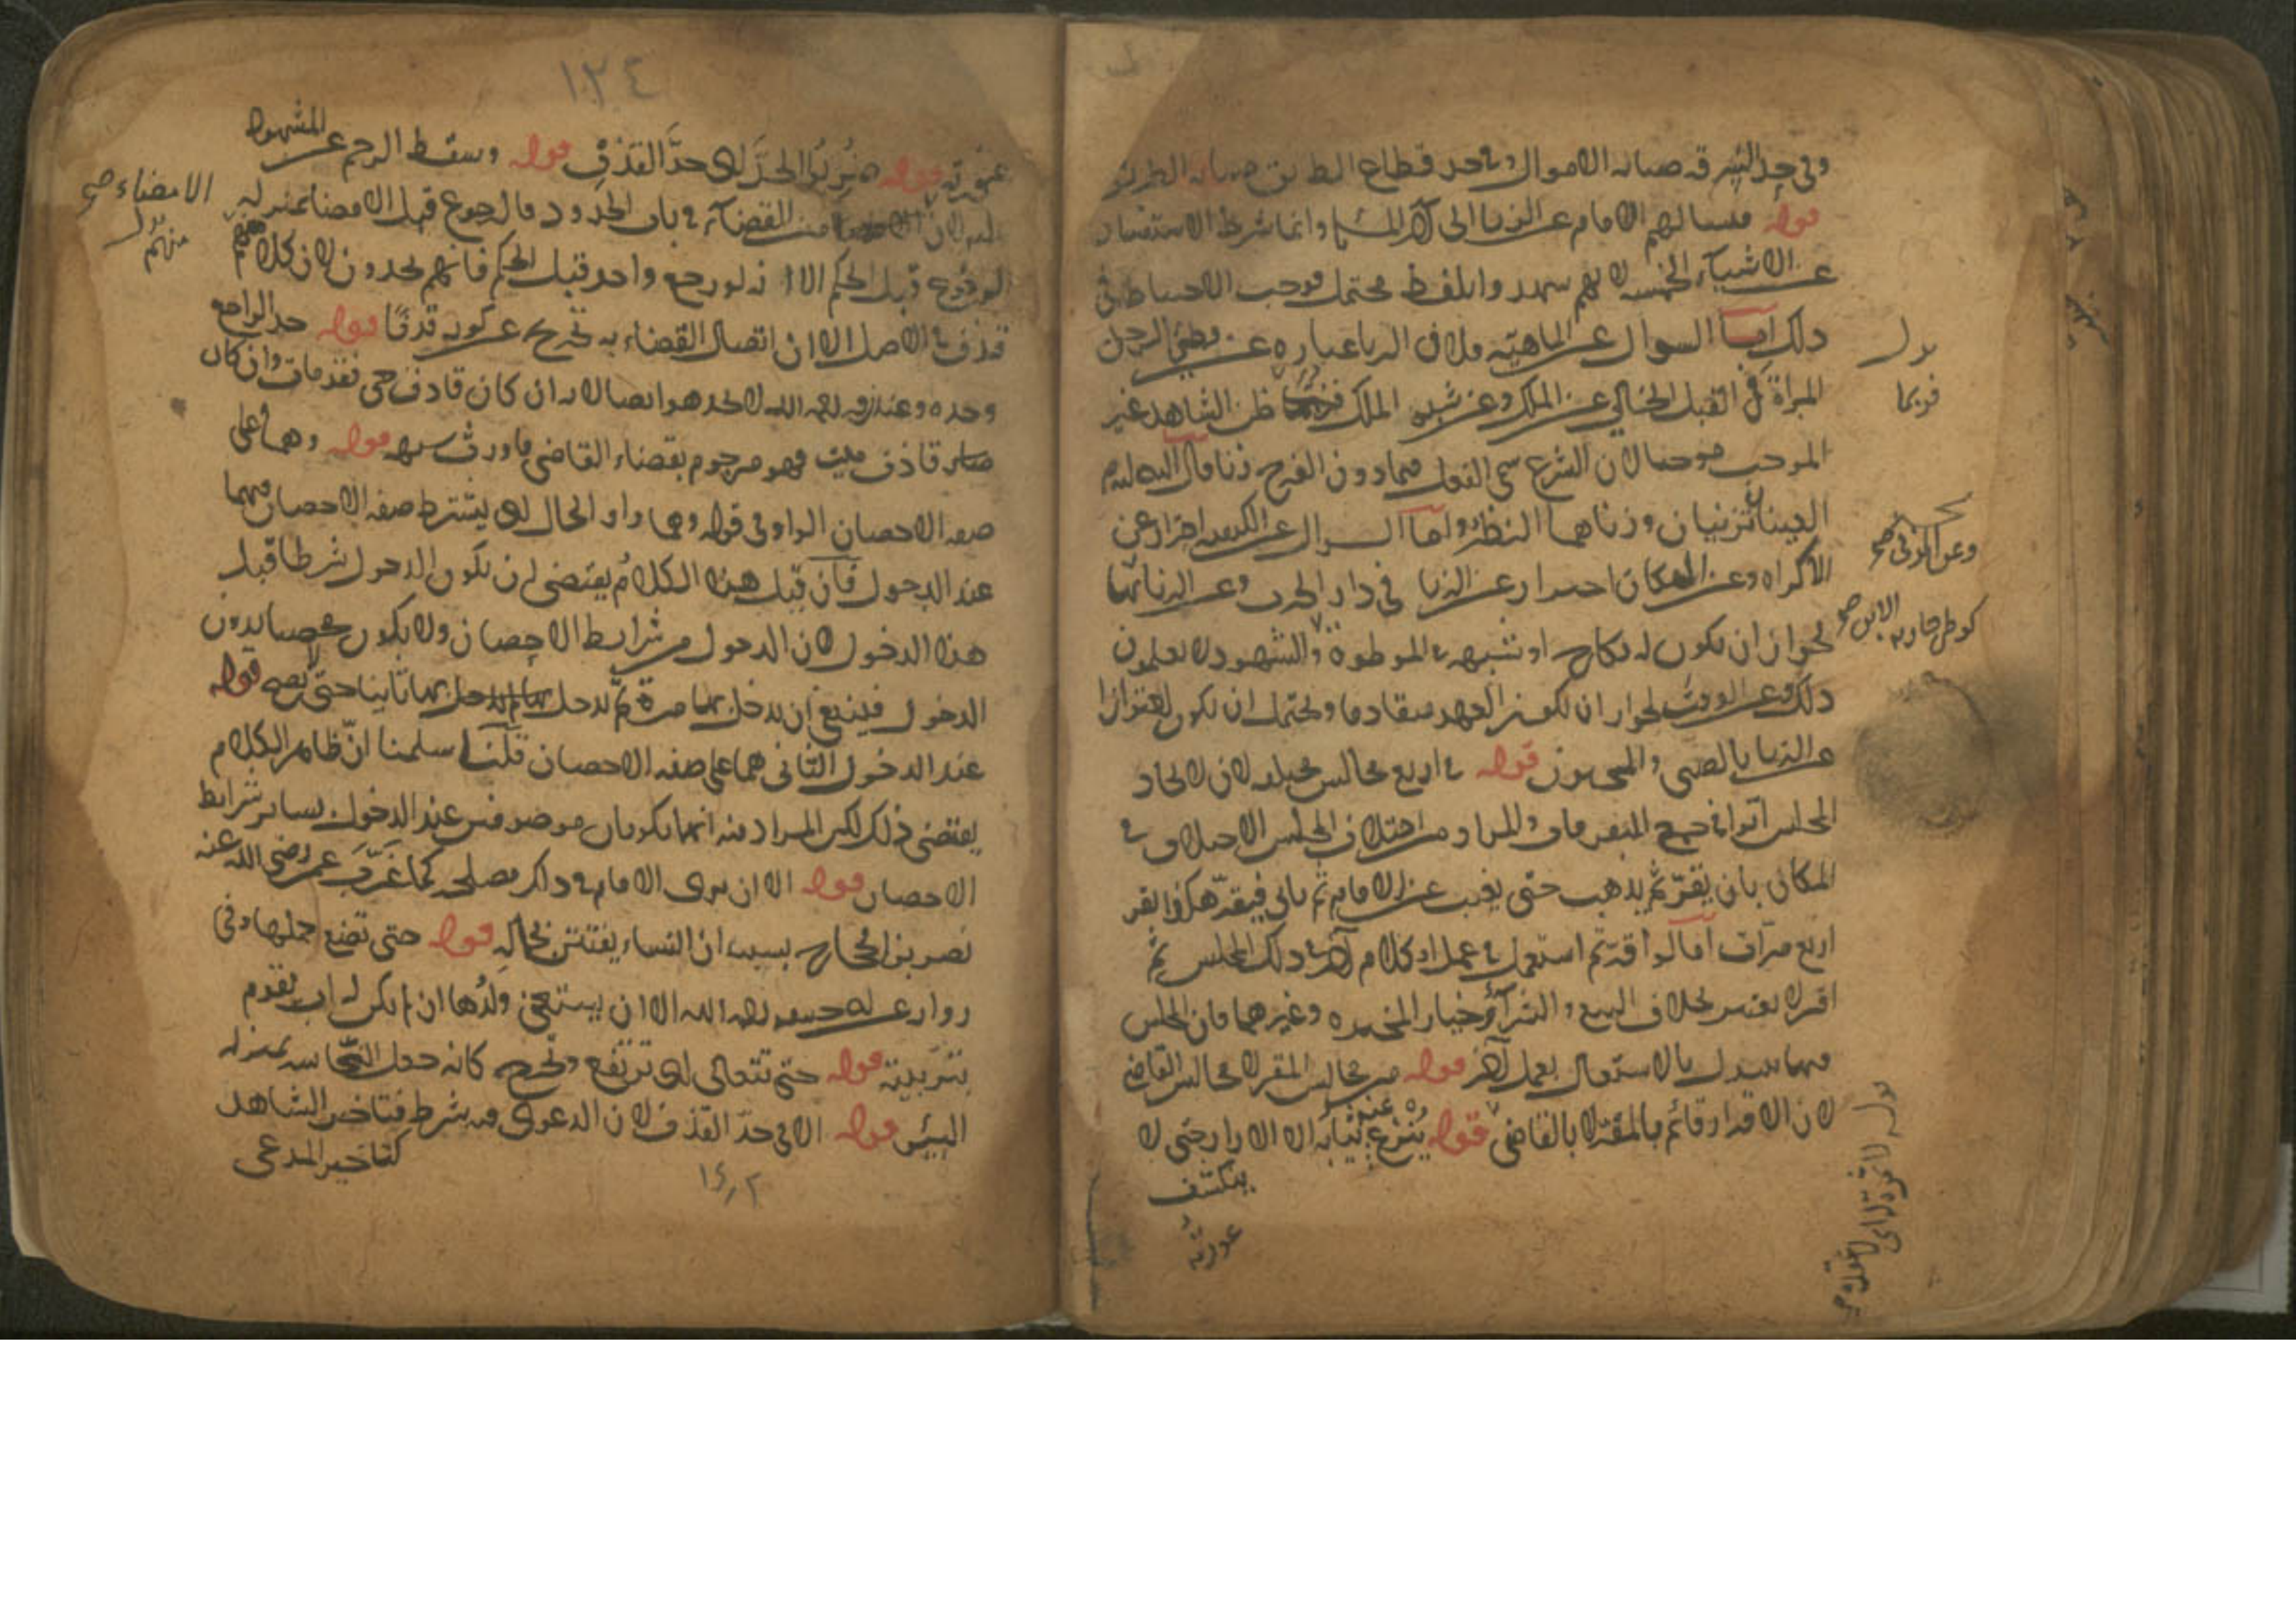 وفي حد السرقة صيانة الاموال وفي حد قطاع الطريق صيانة الطريق
قوله فيسالهم الامام عن الزنا الى آخر المسئلة وانما شرط الاستفسار
عن الاشياء الخمسة لانهم شهدوا بلفظ محتمل فوجب الاحتياط في
ذلك اما السوال عن الماهية فلان الزنا عبارة عن وطئ الرجل
المراة في القبل الخالي عن الملك وعن شبهة الملك ظن الشاهد غير
الموجب موجبا لان الشرع سمى الفعل فيما دون الفرج زنا قال عليه السلم
العينان تزنيان وزناهما النظر واما السوال عن الكيفية احتراز عن
الاكراه وعن المكان احترازا عن الزنا في دار الحرب وعن
لجواز ان يكون له نكاح او شبهة في الموطوة والشهود لا يعلمون
ذلك وعن الوقت لجواز ان يكون العهد متقادما ويحتمل ان يكون
الزنا بالصبي والمجنون قوله في اربع مجالس مختلفة لان لاتحاد
المجلس اثرا في جمع المتفرقات والمراد من اختلاف المجلس الاختلاف في
المكان بان يقر ثم يذهب حتى يغيب عن الامام ثم ياتي فيقر هكذا يقر
اربع مرات اما لو اقر ثم استعمل في عمل او كلام آخر في ذلك المجلس ثم
اقر لا يعتبر بخلاف البيع والشرآء وخيار المخيرة وغيرهما فان المجلس
فيها يتبدل بالاستعمال بعمل آخر قوله من مجالس المقر لا مجالس القاضي
لان الاقرار قائم بالمقر لا بالقاضي قوله ينزع عنه ثيابه الا الازار حتى لا
ينكشف
عورته
بدل
فربما
وعن المزني صح
كوطئ جارية الابن صح
١٢٤
عورته قوله ضربوا الحد اي حد القذف قوله وسقط الرجم عن المشهود
عليه لان من القضآء في باب الحدود فالرجوع قبل الامضا بمنزلة
الرجوع قبل الحكم الا انه لو رجع واحد قبل الحكم فانهم يحدون لان كلامهم
قذف في الاصل الا ان اتصال القضاء به يخرج عن كونه قذفا قوله حد الراجع
وحده وعند زفر رحمه الله لا يحد هو ايضا لانه ان كان قاذف حي فقد مات وان كان
قاذف ميت فهو مرجوم بقضاء القاضي فاورث شبهة قوله وهما على
صفة الاحصان الواو في قوله وهما واو الحال اي يشترط صفة الاحصان فيهما
عند الدخول فان قيل هذا الكلام يقتضي ان يكون الدخول شرطا قبل
هذا الدخول لان الدخول من شرايط الاحصان ولا يكون محصنا بدون
الدخول فينبغي ان يدخل بها مرة ثم يدخل بها ثانيا حتى يصح قوله
عند الدخول الثاني هما على صفة الاحصان قلنا سلمنا ان ظاهر الكلام
يقتضي ذلك لكن المراد منه انهما يكونان موصوفين عند الدخول بسائر شرايط
الاحصان قوله الا ان يرى الامام في ذلك مصلحة كما غرب عمر رضي الله عنه
نصر بن الحجاج بسبب ان النساء يفتتن بجماله قوله حتى تضع حملها وفي
رواية عن ابي حنيفة رحمه الله الا ان يستغني ولدها ان لم يكن له اب يقوم
بتربيته قوله حتى تتعالى اي ترتفع وتخرج كانه جعل النجاسة بمنزلة
البئر قوله الا في حد القذف لان الدعوى فيه شرط فتاخير الشاهد
كتاخير المدعي
الامضاء صح
بدل
منهم